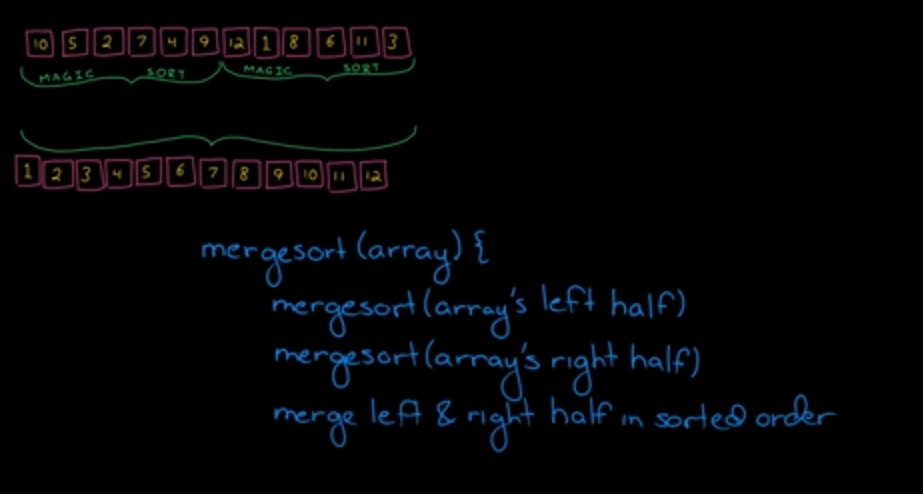 10 5 2 7 4 9 12 1 8 6 11 3
MAGIC SORT MAGIC SORT
1 2 3 4 5 6 7 8 9 10 11 12
mergesort (array) {
mergesort (array's left half)
mergesort (array's right half)
merge left & right half in sorted order